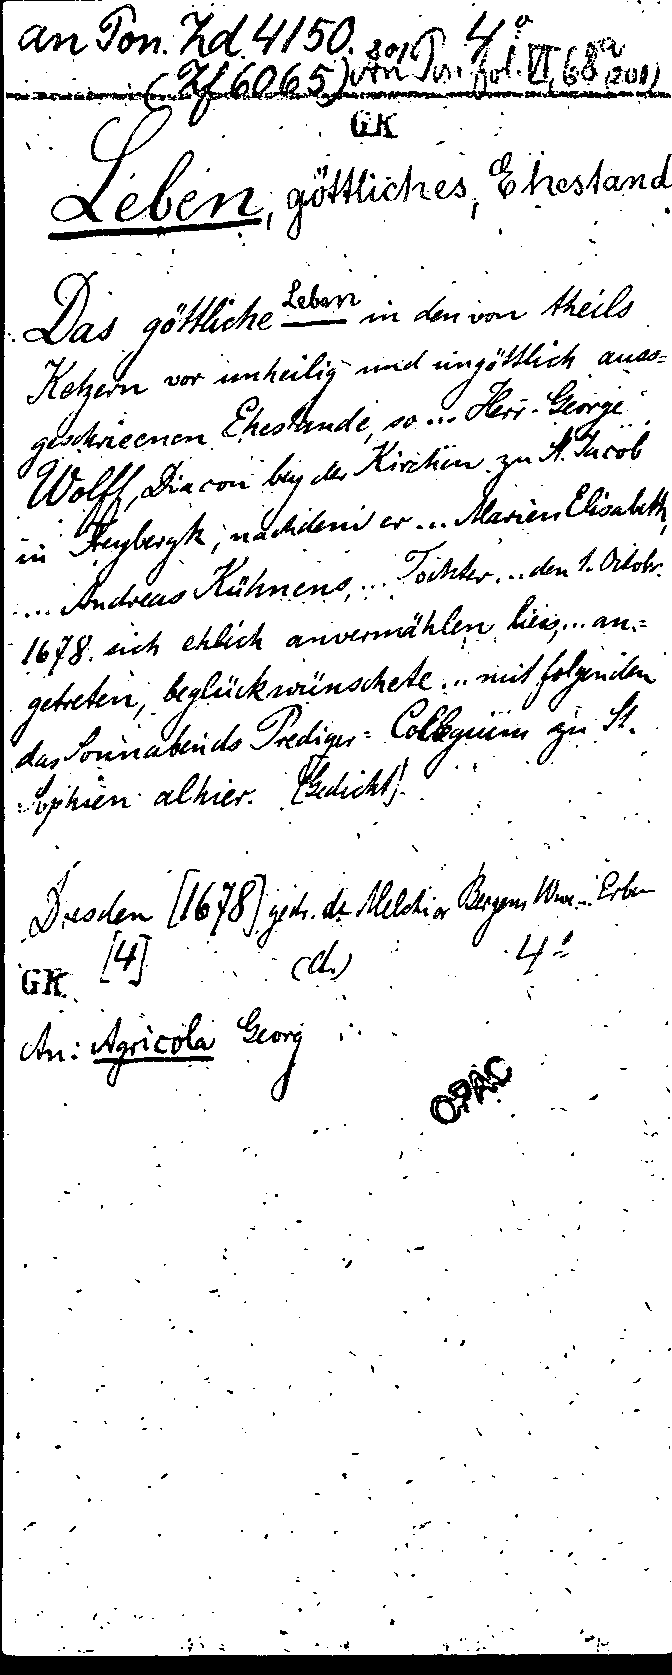 an Pon. Zd 4150. 4°
(Zf 6065) An Pon. fol. VI, 68a (201)
GK
Leben, göttliches, Ehestand
Das göttliche Leben in den von theils
Ketzern vor unheilig und ungöttlich auss=
geschrieenen Ehestande, so ... Herr George
Wolff, Diacon bey der Kirchen zu St. Jacob
in Freybergk, nachdem er ... Marien Elisabeth,
... Andreas Kühnens, ... Tochter ... den 1. Octobr.
1678. sich ehlich anvermählen lies, ... an=
getreten, beglückwünschete ... mit folgenden
das Sonnabends Prediger= Collegium zu St.
Sophien alhier. (Gedicht)
Dresden [1678] gedr. d. Melchior Bergens Wwe ... Erben
GK [4] (d.) 4°
An: Agricola Georg
OPAC